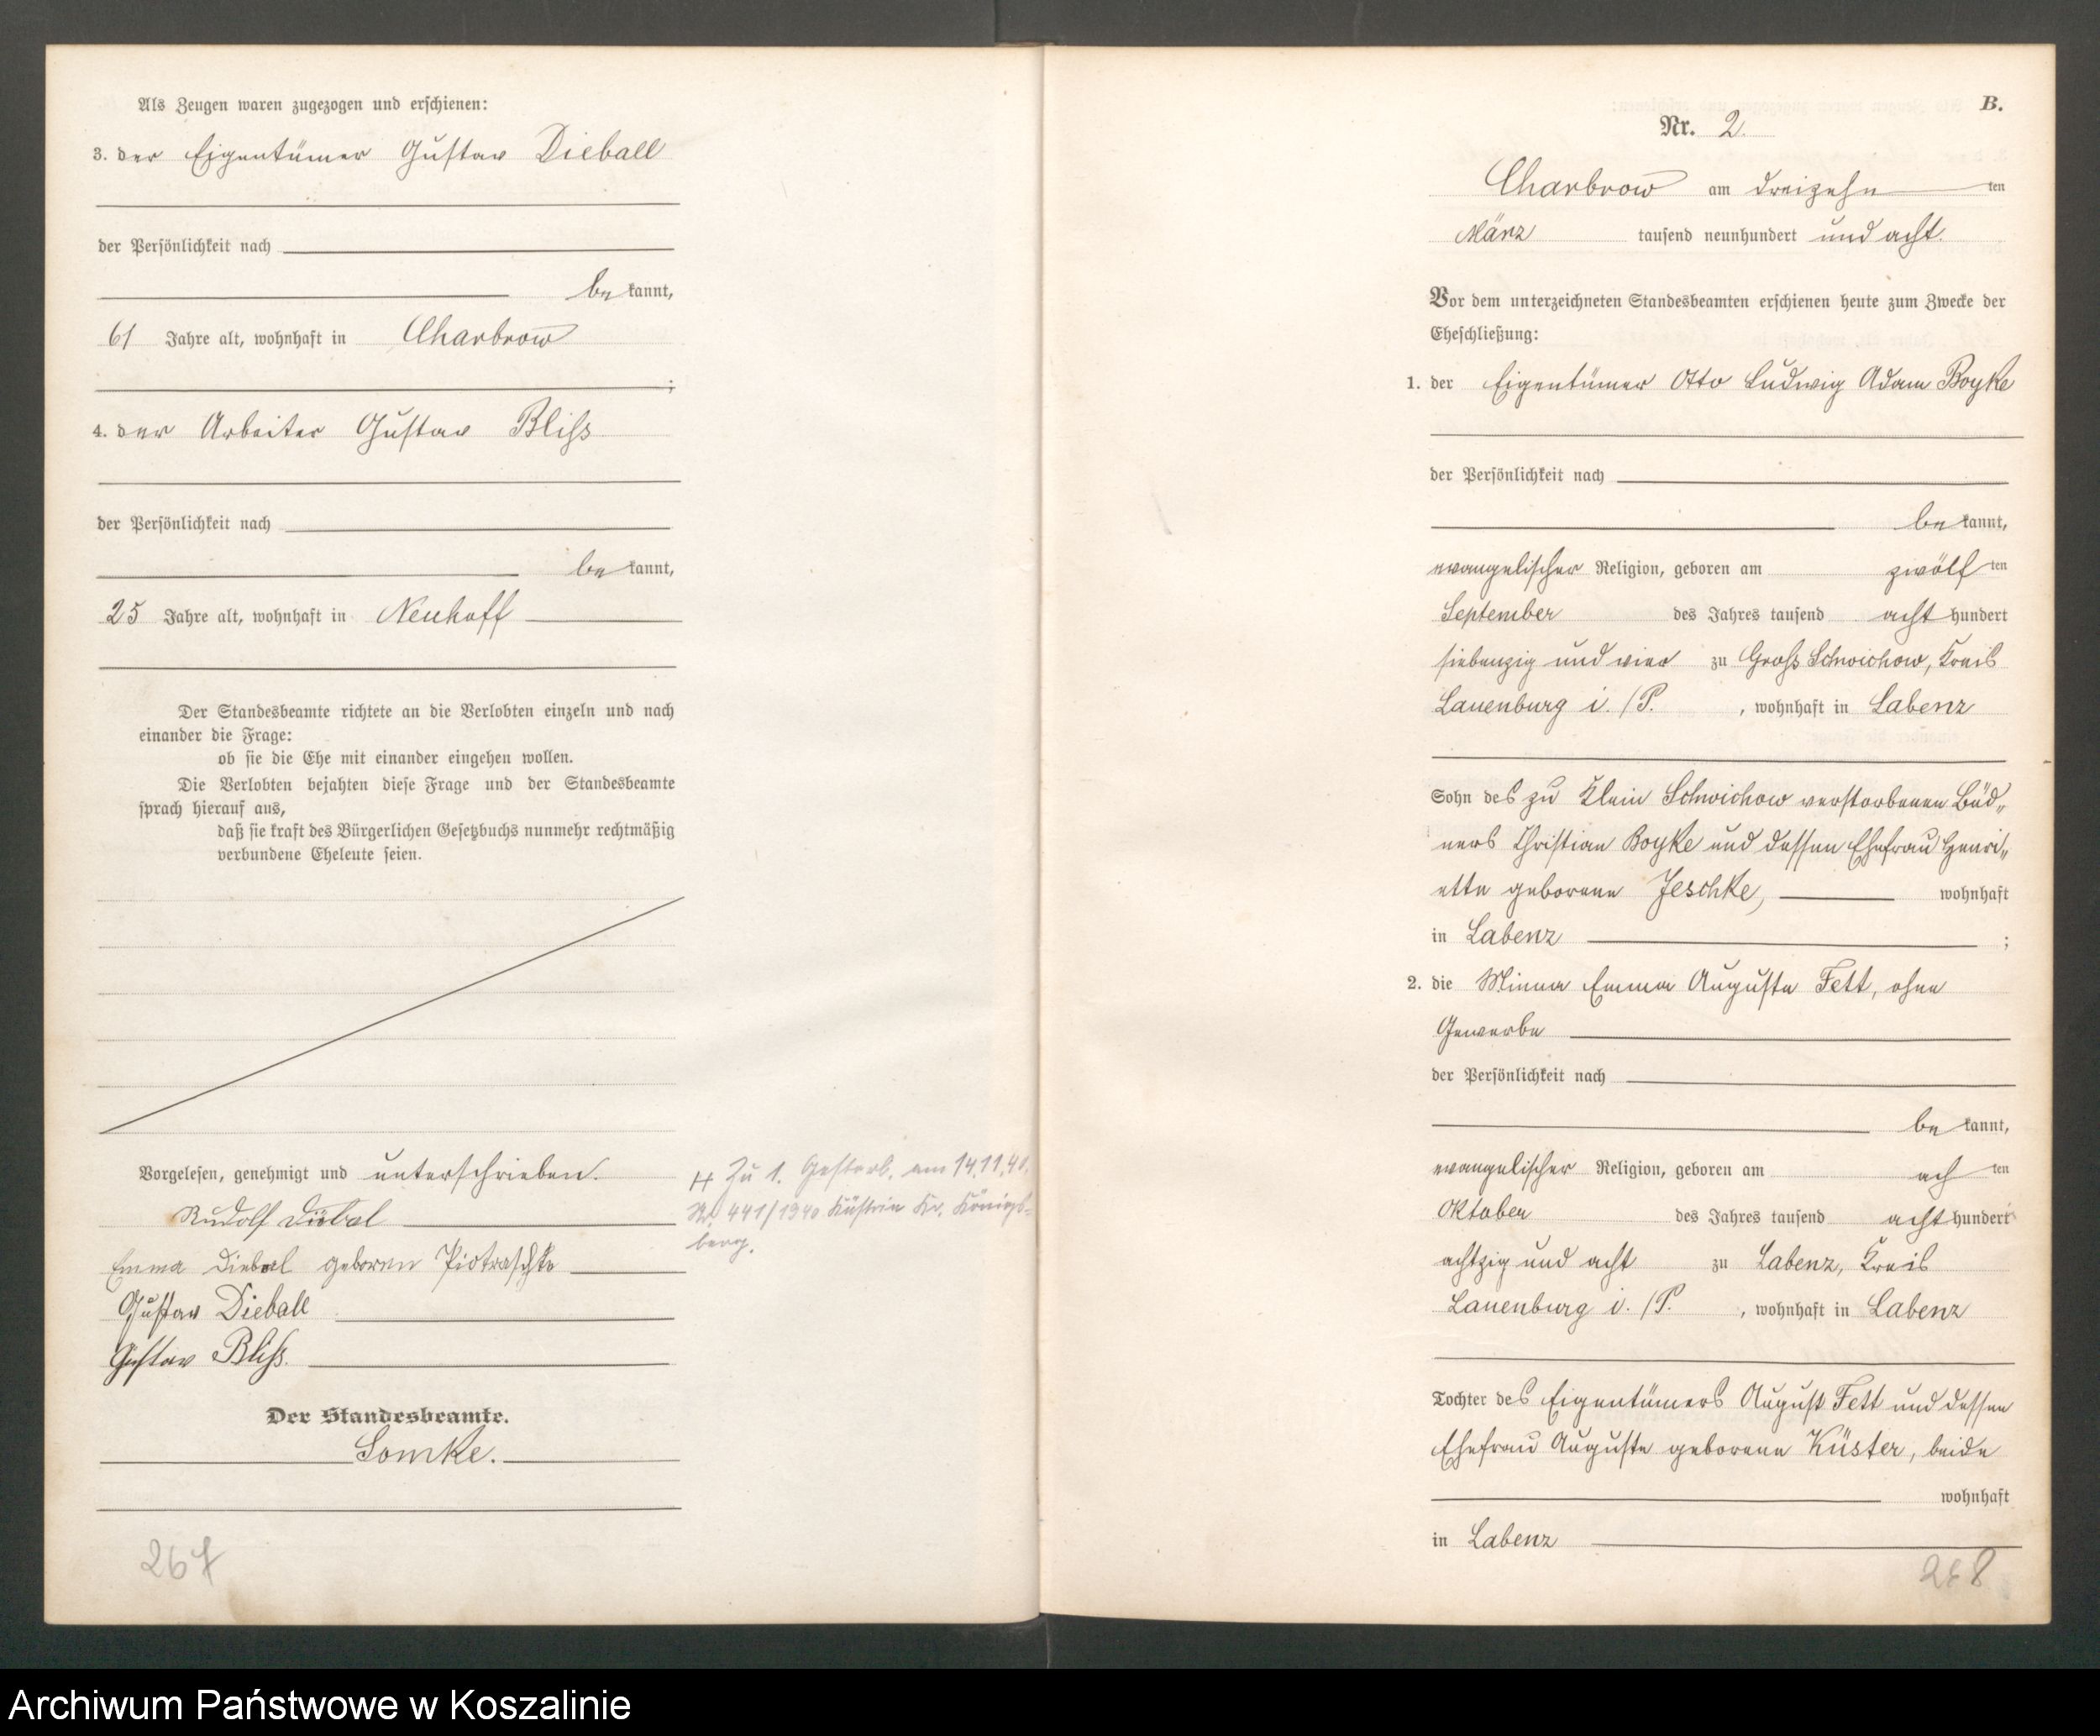 Als Zeugen waren zugezogen und erschienen:
3. der Eigentümer Gustav Dieball
der Persönlichkeit nach
be kannt,
61 Jahre alt, wohnhaft in Charbrow
;
4. der Arbeiter Gustav Bliß
der Persönlichkeit nach
be kannt,
25 Jahre alt, wohnhaft in Neuhoff
Der Standesbeamte richtete an die Verlobten einzeln und nach
einander die Frage:
ob sie die Ehe mit einander eingehen wollen.
Die Verlobten bejahten diese Frage und der Standesbeamte
sprach hierauf aus,
daß sie kraft des Bürgerlichen Gesetzbuchs nunmehr rechtmäßig
verbundene Eheleute seien.
Vorgelesen, genehmigt und unterschrieben.
Rudolf Diebal
Emma Diebal geboren Piotraschke
Gustav Dieball
Gustav Bliß.
Der Standesbeamte.
Somke.
H Zu 1. Gestorb. am 14.11.40.
Nr. 441/1940 Küstrin Kr. Königs-
berg.
267
B.
Nr. 2.
Charbrow am dreizehn ten
März tausend neunhundert und acht.
Vor dem unterzeichneten Standesbeamten erschienen heute zum Zwecke der
Eheschließung:
1. der Eigentümer Otto Ludwig Adam Boyke
der Persönlichkeit nach
be kannt,
evangelischer Religion, geboren am zwölf ten
September des Jahres tausend acht hundert
siebenzig und vier zu Groß Schwichow, Kreis
Lauenburg i./P. , wohnhaft in Labenz
Sohn des zu Klein Schwichow verstorbenen Büd„
ners Christian Boyke und dessen Ehefrau Henri„
ette geborene Jeschke, wohnhaft
in Labenz ;
2. die Minna Emma Auguste Fett, ohne
Gewerbe
der Persönlichkeit nach
be kannt,
evangelischer Religion, geboren am ach ten
Oktober des Jahres tausend acht hundert
achtzig und acht zu Labenz, Kreis
Lauenburg i./P. , wohnhaft in Labenz
Tochter des Eigentümers August Fett und dessen
Ehefrau Auguste geborene Küster, beide
wohnhaft
in Labenz
268
Archiwum Państwowe w Koszalinie